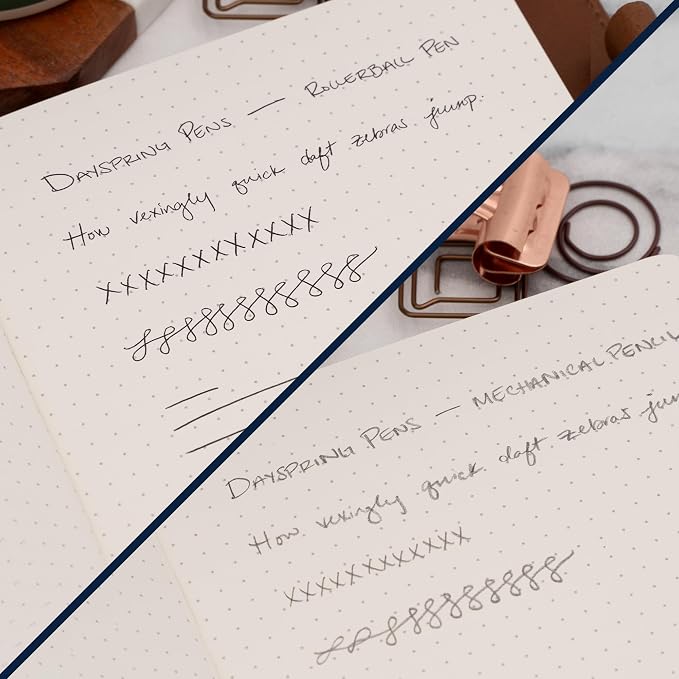 DAYSPRING PENS — ROLLERBALL PEN
How vexingly quick daft zebras jump.
XXXXXXXXXXXX
DAYSPRING PENS — MECHANICAL PENCIL
How vexingly quick daft zebras jum
XXXXXXXXXXXX